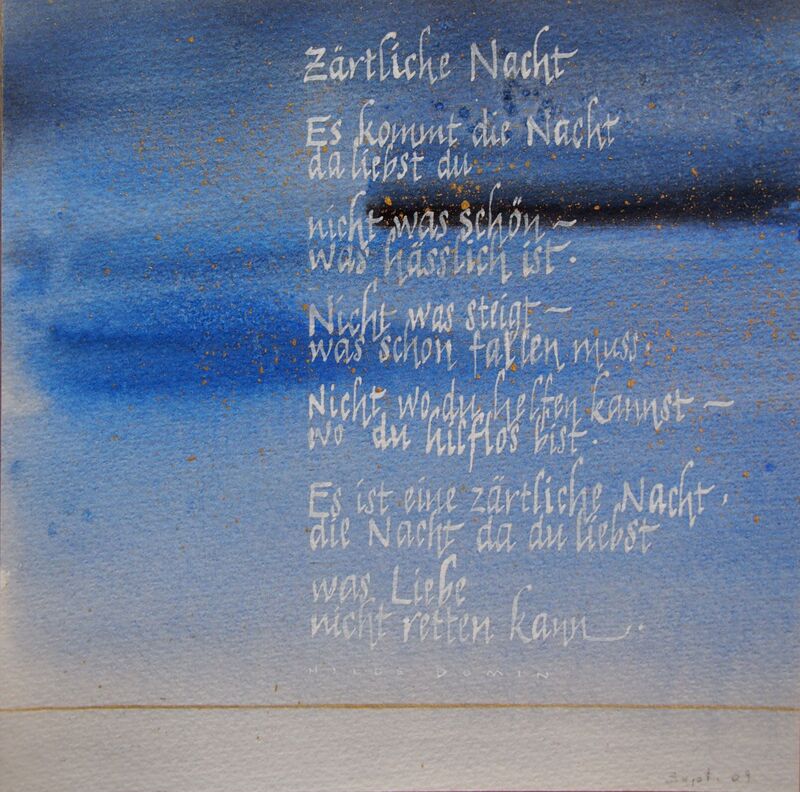 Zärtliche Nacht
Es kommt die Nacht
da liebst du
nicht was schön –
was hässlich ist.
Nicht was steigt –
was schon fallen muss.
Nicht wo du helfen kannst –
wo du hilflos bist.
Es ist eine zärtliche Nacht,
die Nacht da du liebst
was Liebe
nicht retten kann.
HILDE DOMIN
Sept. 09